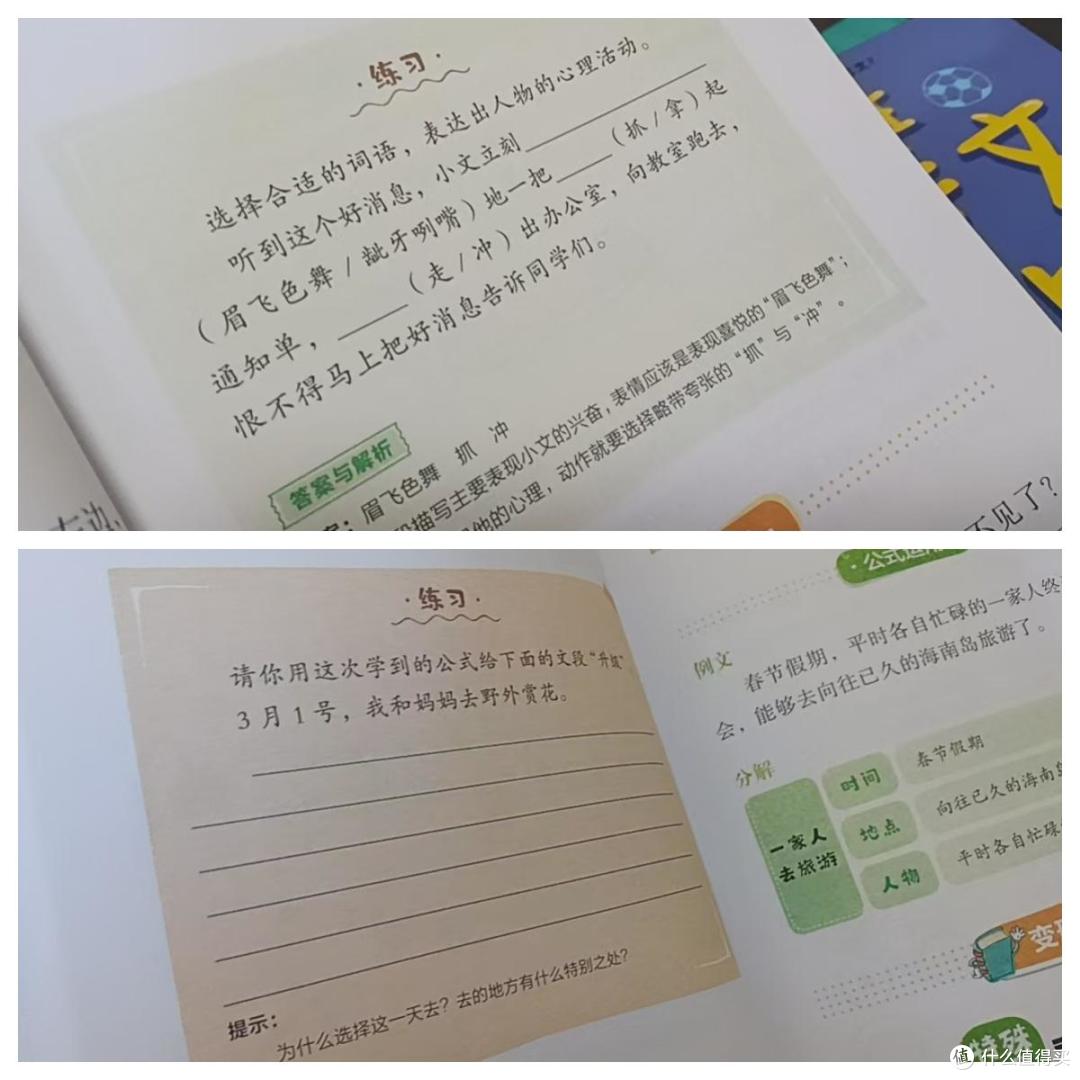 ·练习·
选择合适的词语，表达出人物的心理活动。
听到这个好消息，小文立刻
（眉飞色舞/龇牙咧嘴）地一把（抓/拿）起
通知单，（走/冲）出办公室，向教室跑去，
恨不得马上把好消息告诉同学们。
答案与解析
眉飞色舞 抓 冲
描写主要表现小文的兴奋，表情应该是表现喜悦的“眉飞色舞”；
他的心理，动作就要选择略带夸张的“抓”与“冲”。
不见了？
文
·练习·
请你用这次学到的公式给下面的文段“升级”
3月1号，我和妈妈去野外赏花。
提示：
为什么选择这一天去？去的地方有什么特别之处？
·公式运用
例文
春节假期，平时各自忙碌的一家人终
会，能够去向往已久的海南岛旅游了。
分解
一家人
去旅游
时间
春节假期
地点
向往已久的海南岛
人物
平时各自忙碌
变
特殊
值 什么值得买